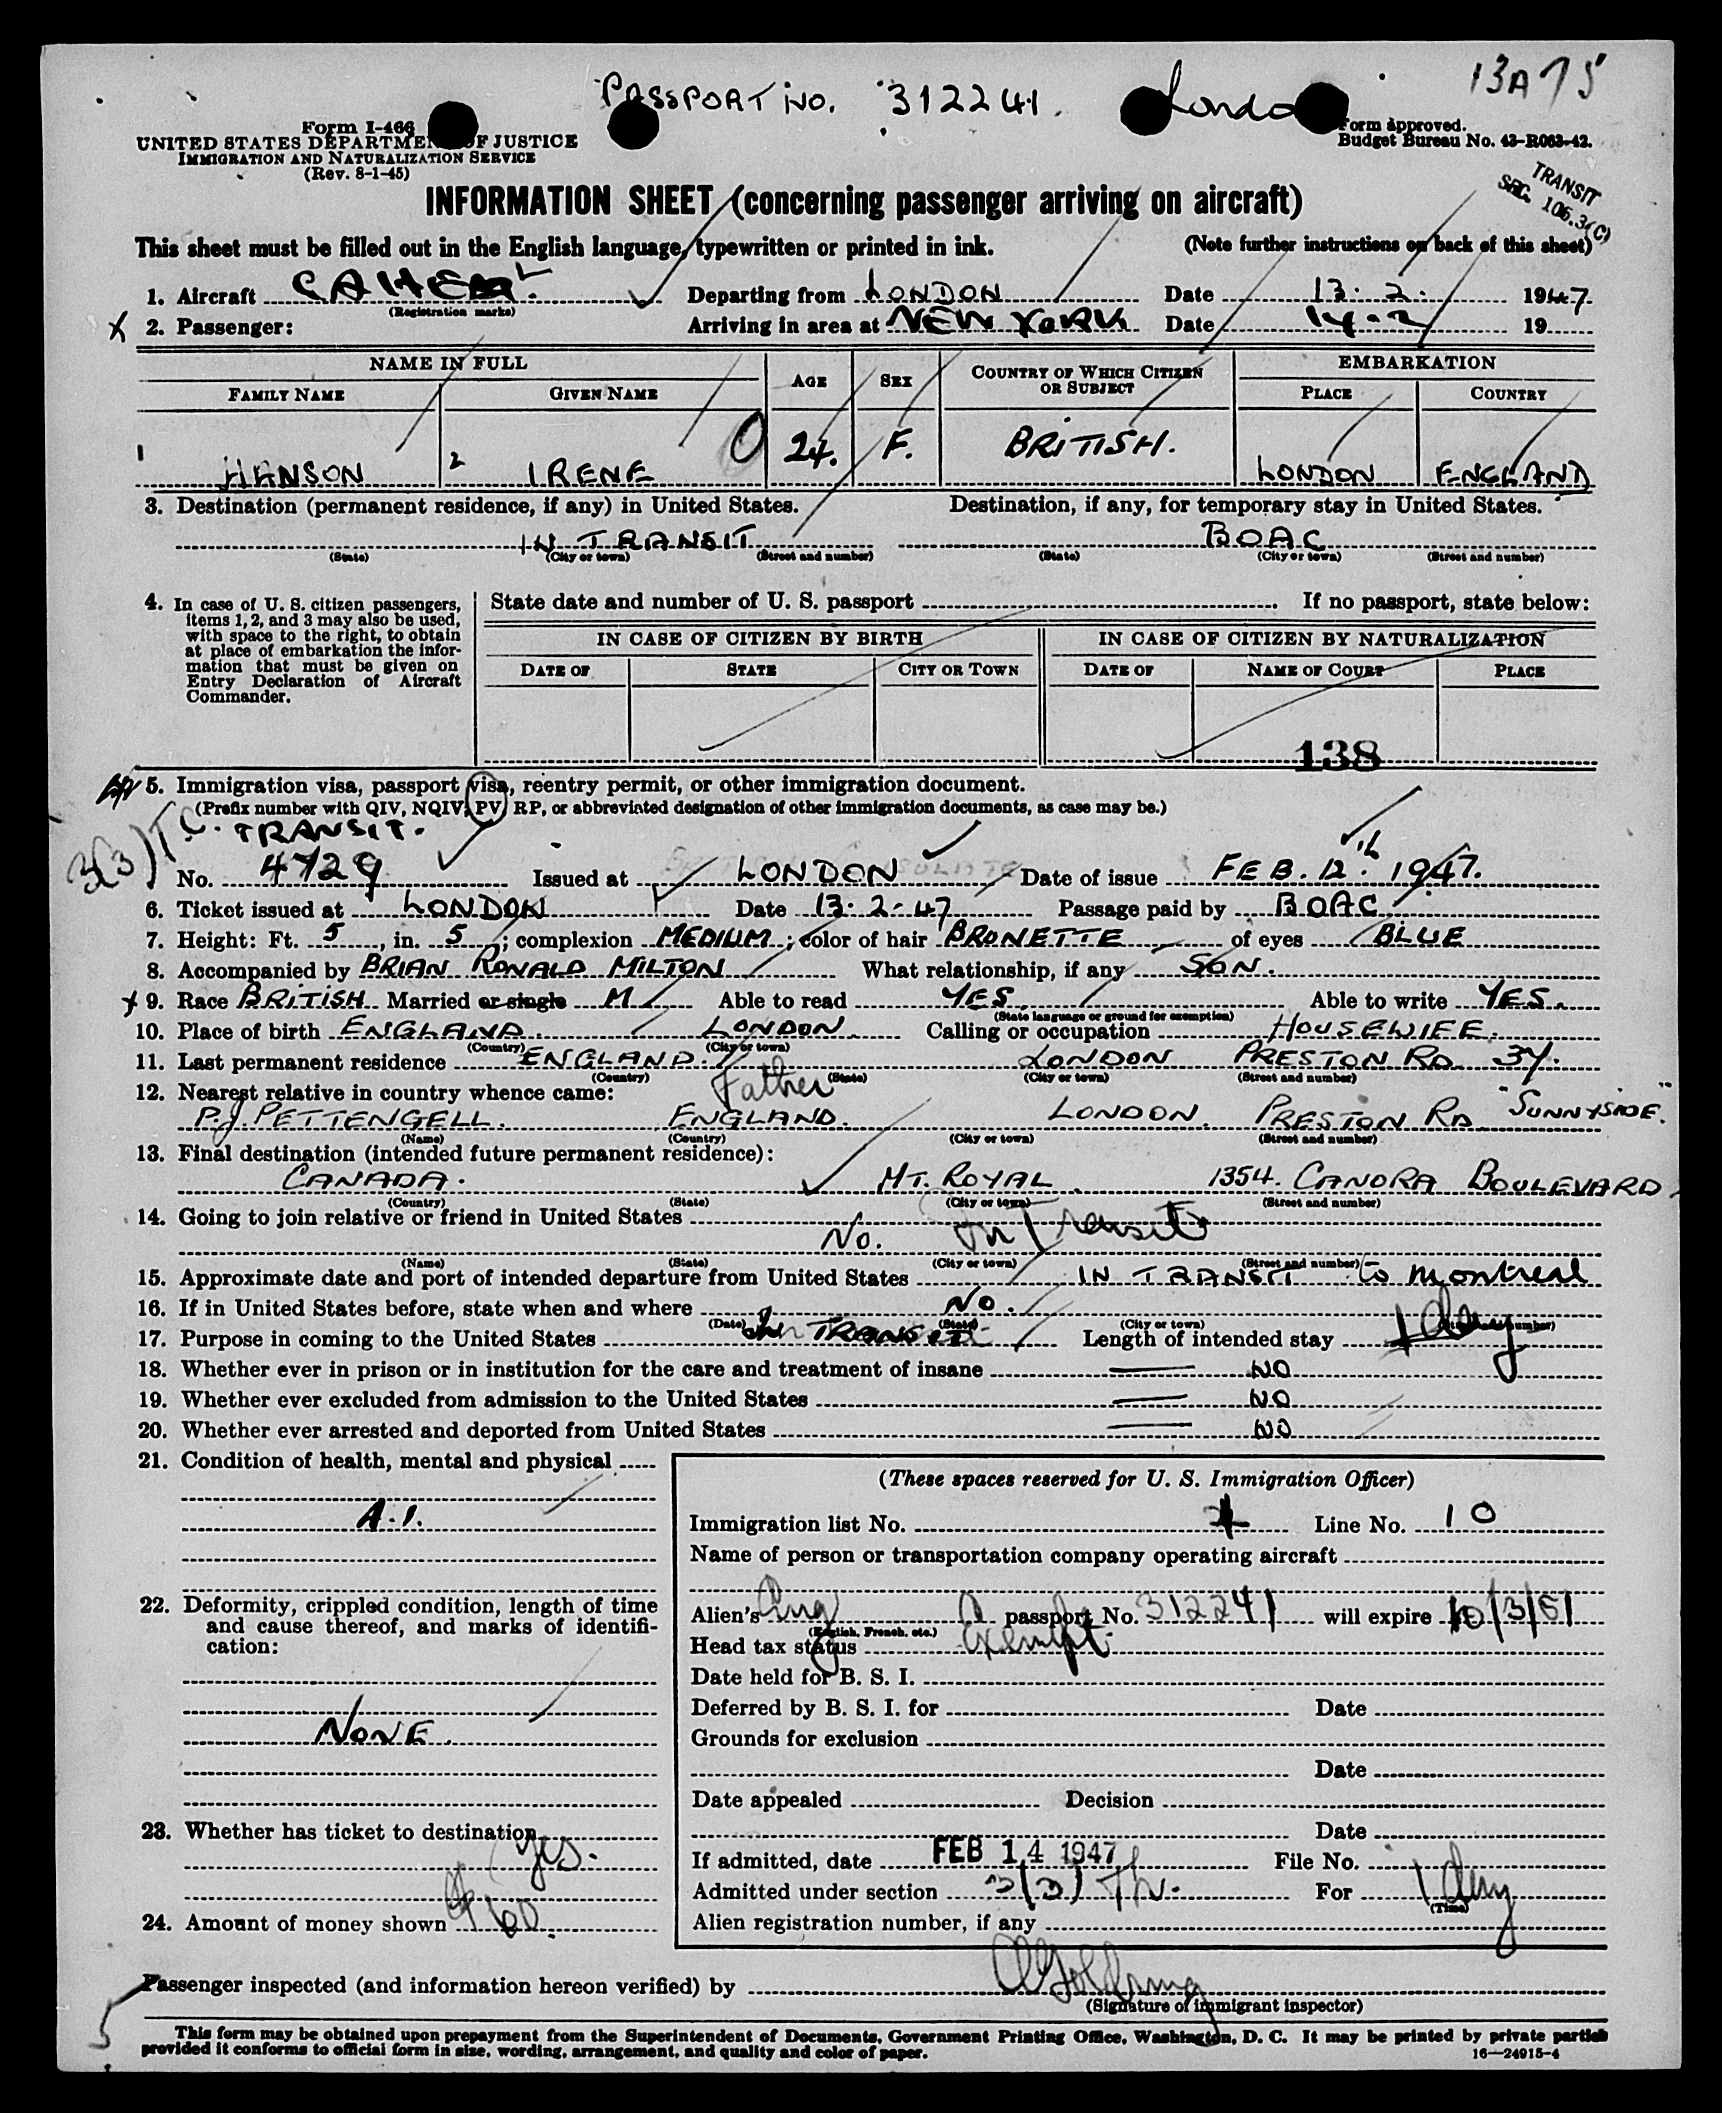 PASSPORT NO. 312241. London 13A75
Form I-466
UNITED STATES DEPARTMENT OF JUSTICE
IMMIGRATION AND NATURALIZATION SERVICE
(Rev. 8-1-45)
Form approved.
Budget Bureau No. 43-R063-42.
TRANSIT
SEC. 106.3(C)
INFORMATION SHEET (concerning passenger arriving on aircraft)
This sheet must be filled out in the English language, typewritten or printed in ink. (Note further instructions on back of this sheet)
1. Aircraft Departing from LONDON Date 13.2. 1947
(Registration marks)
2. Passenger: Arriving in area at NEW YORK Date 14-2 19
NAME IN FULL AGE SEX COUNTRY OF WHICH CITIZEN OR SUBJECT EMBARKATION
FAMILY NAME GIVEN NAME PLACE COUNTRY
1 HANSON 2 IRENE 0 24. F. BRITISH. LONDON ENGLAND
3. Destination (permanent residence, if any) in United States. Destination, if any, for temporary stay in United States.
IN TRANSIT BOAC
(State) (City or town) (Street and number) (State) (City or town) (Street and number)
4. In case of U. S. citizen passengers, items 1, 2, and 3 may also be used, with space to the right, to obtain at place of embarkation the information that must be given on Entry Declaration of Aircraft Commander.
State date and number of U. S. passport If no passport, state below:
IN CASE OF CITIZEN BY BIRTH IN CASE OF CITIZEN BY NATURALIZATION
DATE OF STATE CITY OR TOWN DATE OF NAME OF COURT PLACE
138
5. Immigration visa, passport visa, reentry permit, or other immigration document.
(Prefix number with QIV, NQIV, PV, RP, or abbreviated designation of other immigration documents, as case may be.)
3(3) T.C. TRANSIT.
No. 4729 Issued at LONDON Date of issue FEB. 12th. 1947.
6. Ticket issued at LONDON Date 13-2-47 Passage paid by BOAC
7. Height: Ft. 5, in. 5; complexion MEDIUM; color of hair BRUNETTE of eyes BLUE
8. Accompanied by BRIAN RONALD MILTON What relationship, if any SON.
9. Race BRITISH Married or single M Able to read YES Able to write YES.
(State language or ground for exemption)
10. Place of birth ENGLAND. LONDON. Calling or occupation HOUSEWIFE.
(Country) (City or town)
11. Last permanent residence ENGLAND. LONDON PRESTON RD. 37.
(Country) (State) (City or town) (Street and number)
12. Nearest relative in country whence came: Father
P.J. PETTENGELL. ENGLAND. LONDON. PRESTON RD "SUNNYSIDE."
(Name) (Country) (City or town) (Street and number)
13. Final destination (intended future permanent residence):
CANADA. MT. ROYAL. 1354. CANORA BOULEVARD.
(Country) (State) (City or town) (Street and number)
14. Going to join relative or friend in United States
No. In Transit
(Name) (State) (City or town) (Street and number)
15. Approximate date and port of intended departure from United States IN TRANSIT to Montreal
16. If in United States before, state when and where NO.
(Date) (State) (City or town) (Street and number)
17. Purpose in coming to the United States In TRANSIT Length of intended stay 1 day
18. Whether ever in prison or in institution for the care and treatment of insane NO
19. Whether ever excluded from admission to the United States NO
20. Whether ever arrested and deported from United States NO
21. Condition of health, mental and physical
A.1.
22. Deformity, crippled condition, length of time and cause thereof, and marks of identification:
NONE.
23. Whether has ticket to destination
yes.
24. Amount of money shown $60.
(These spaces reserved for U. S. Immigration Officer)
Immigration list No. Line No. 10
Name of person or transportation company operating aircraft
Alien's Eng passport No. 312241 will expire 10/3/51
(English, French, etc.)
Head tax status exempt
Date held for B. S. I.
Deferred by B. S. I. for Date
Grounds for exclusion
Date
Date appealed Decision
Date
If admitted, date FEB 14 1947 File No.
Admitted under section 3(3) For 1 day
(Time)
Alien registration number, if any
Passenger inspected (and information hereon verified) by
(Signature of immigrant inspector)
This form may be obtained upon prepayment from the Superintendent of Documents, Government Printing Office, Washington, D. C. It may be printed by private parties
provided it conforms to official form in size, wording, arrangement, and quality and color of paper.
16—24915-4